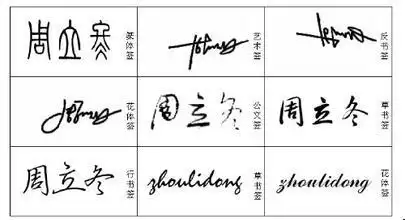 周立冬
篆体签
艺术签
反书签
花体签
周立冬
公文签
周立冬
草书签
周立冬
行书签
zhoulidong
草书签
zhoulidong
花体签